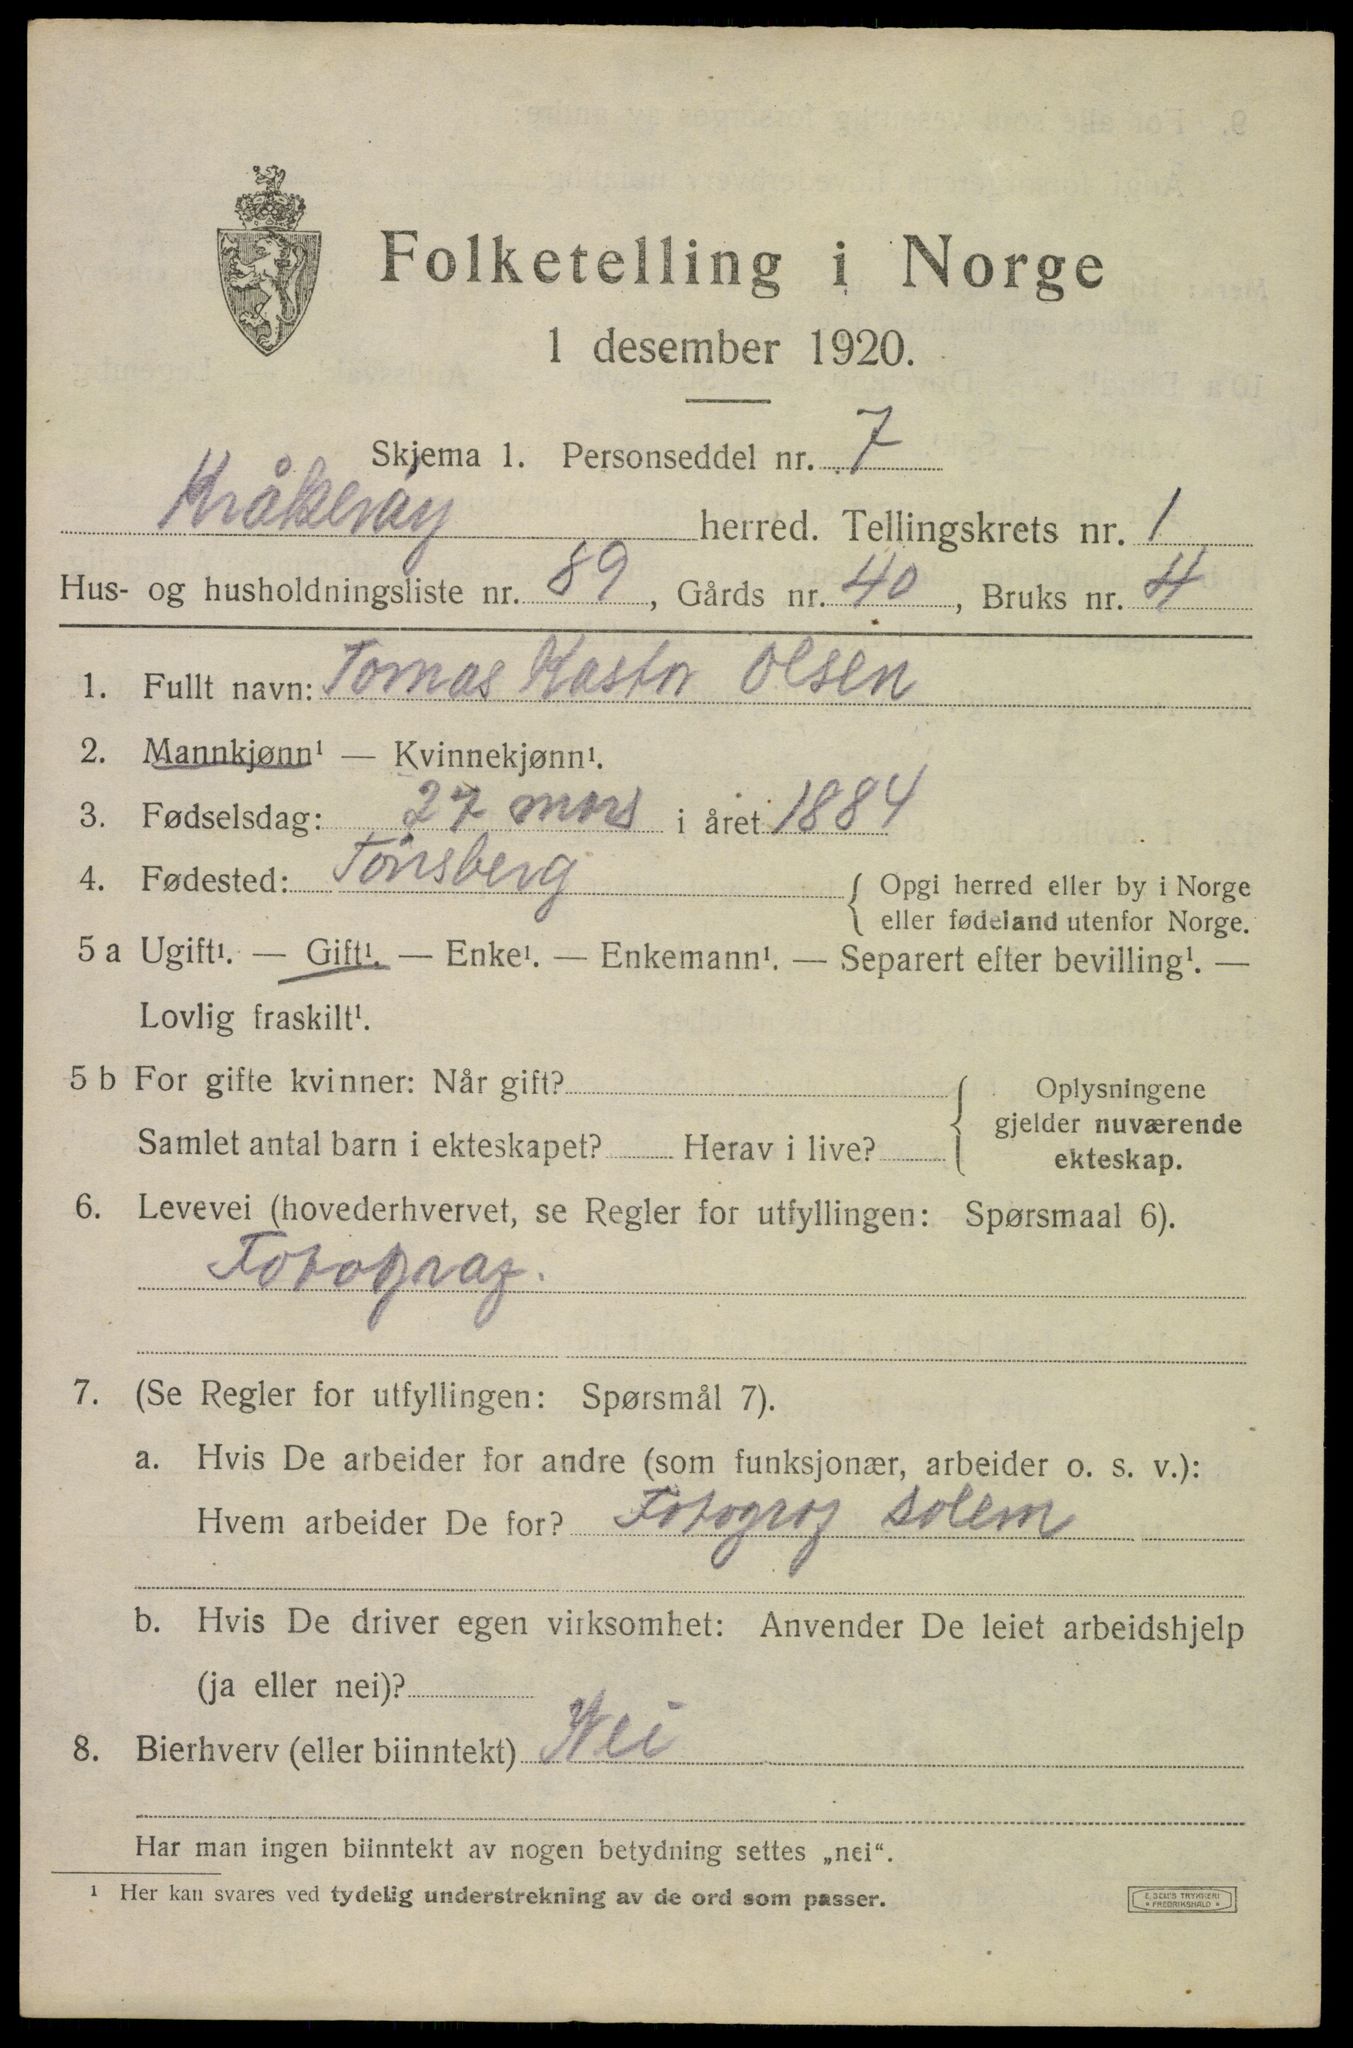 Folketelling i Norge
1 desember 1920.
Skjema 1. Personseddel nr. 7
Kråkerøy herred. Tellingskrets nr. 1
Hus- og husholdningsliste nr. 89, Gårds nr. 40, Bruks nr. 4
1. Fullt navn: Tomas Kastor Olsen
2. Mannkjønn¹ — Kvinnekjønn¹.
3. Fødselsdag: 27 mars i året 1884
4. Fødested: Tønsberg { Opgi herred eller by i Norge
eller fødeland utenfor Norge.
5 a Ugift¹. — Gift¹. — Enke¹. — Enkemann¹. — Separert efter bevilling¹. —
Lovlig fraskilt¹.
5 b For gifte kvinner: Når gift? { Oplysningene
gjelder nuværende
Samlet antal barn i ekteskapet? Herav i live?
ekteskap.
6. Levevei (hovederhvervet, se Regler for utfyllingen: Spørsmaal 6).
Fotograf.
7. (Se Regler for utfyllingen: Spørsmål 7).
a. Hvis De arbeider for andre (som funksjonær, arbeider o. s. v.):
Hvem arbeider De for? Fotograf Solem
b. Hvis De driver egen virksomhet: Anvender De leiet arbeidshjelp
(ja eller nei)?
8. Bierhverv (eller biinntekt) Nei
Har man ingen biinntekt av nogen betydning settes „nei“.
¹ Her kan svares ved tydelig understrekning av de ord som passer.
E. SEM'S TRYKKERI
* FREDRIKSHALD *